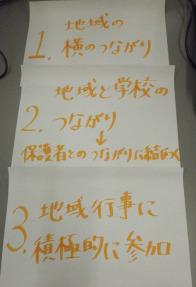 地域の
1. 横のつながり
地域と学校の
2. つながり
↓
保護者とのつながりに結びつく
3. 地域行事に
積極的に参加